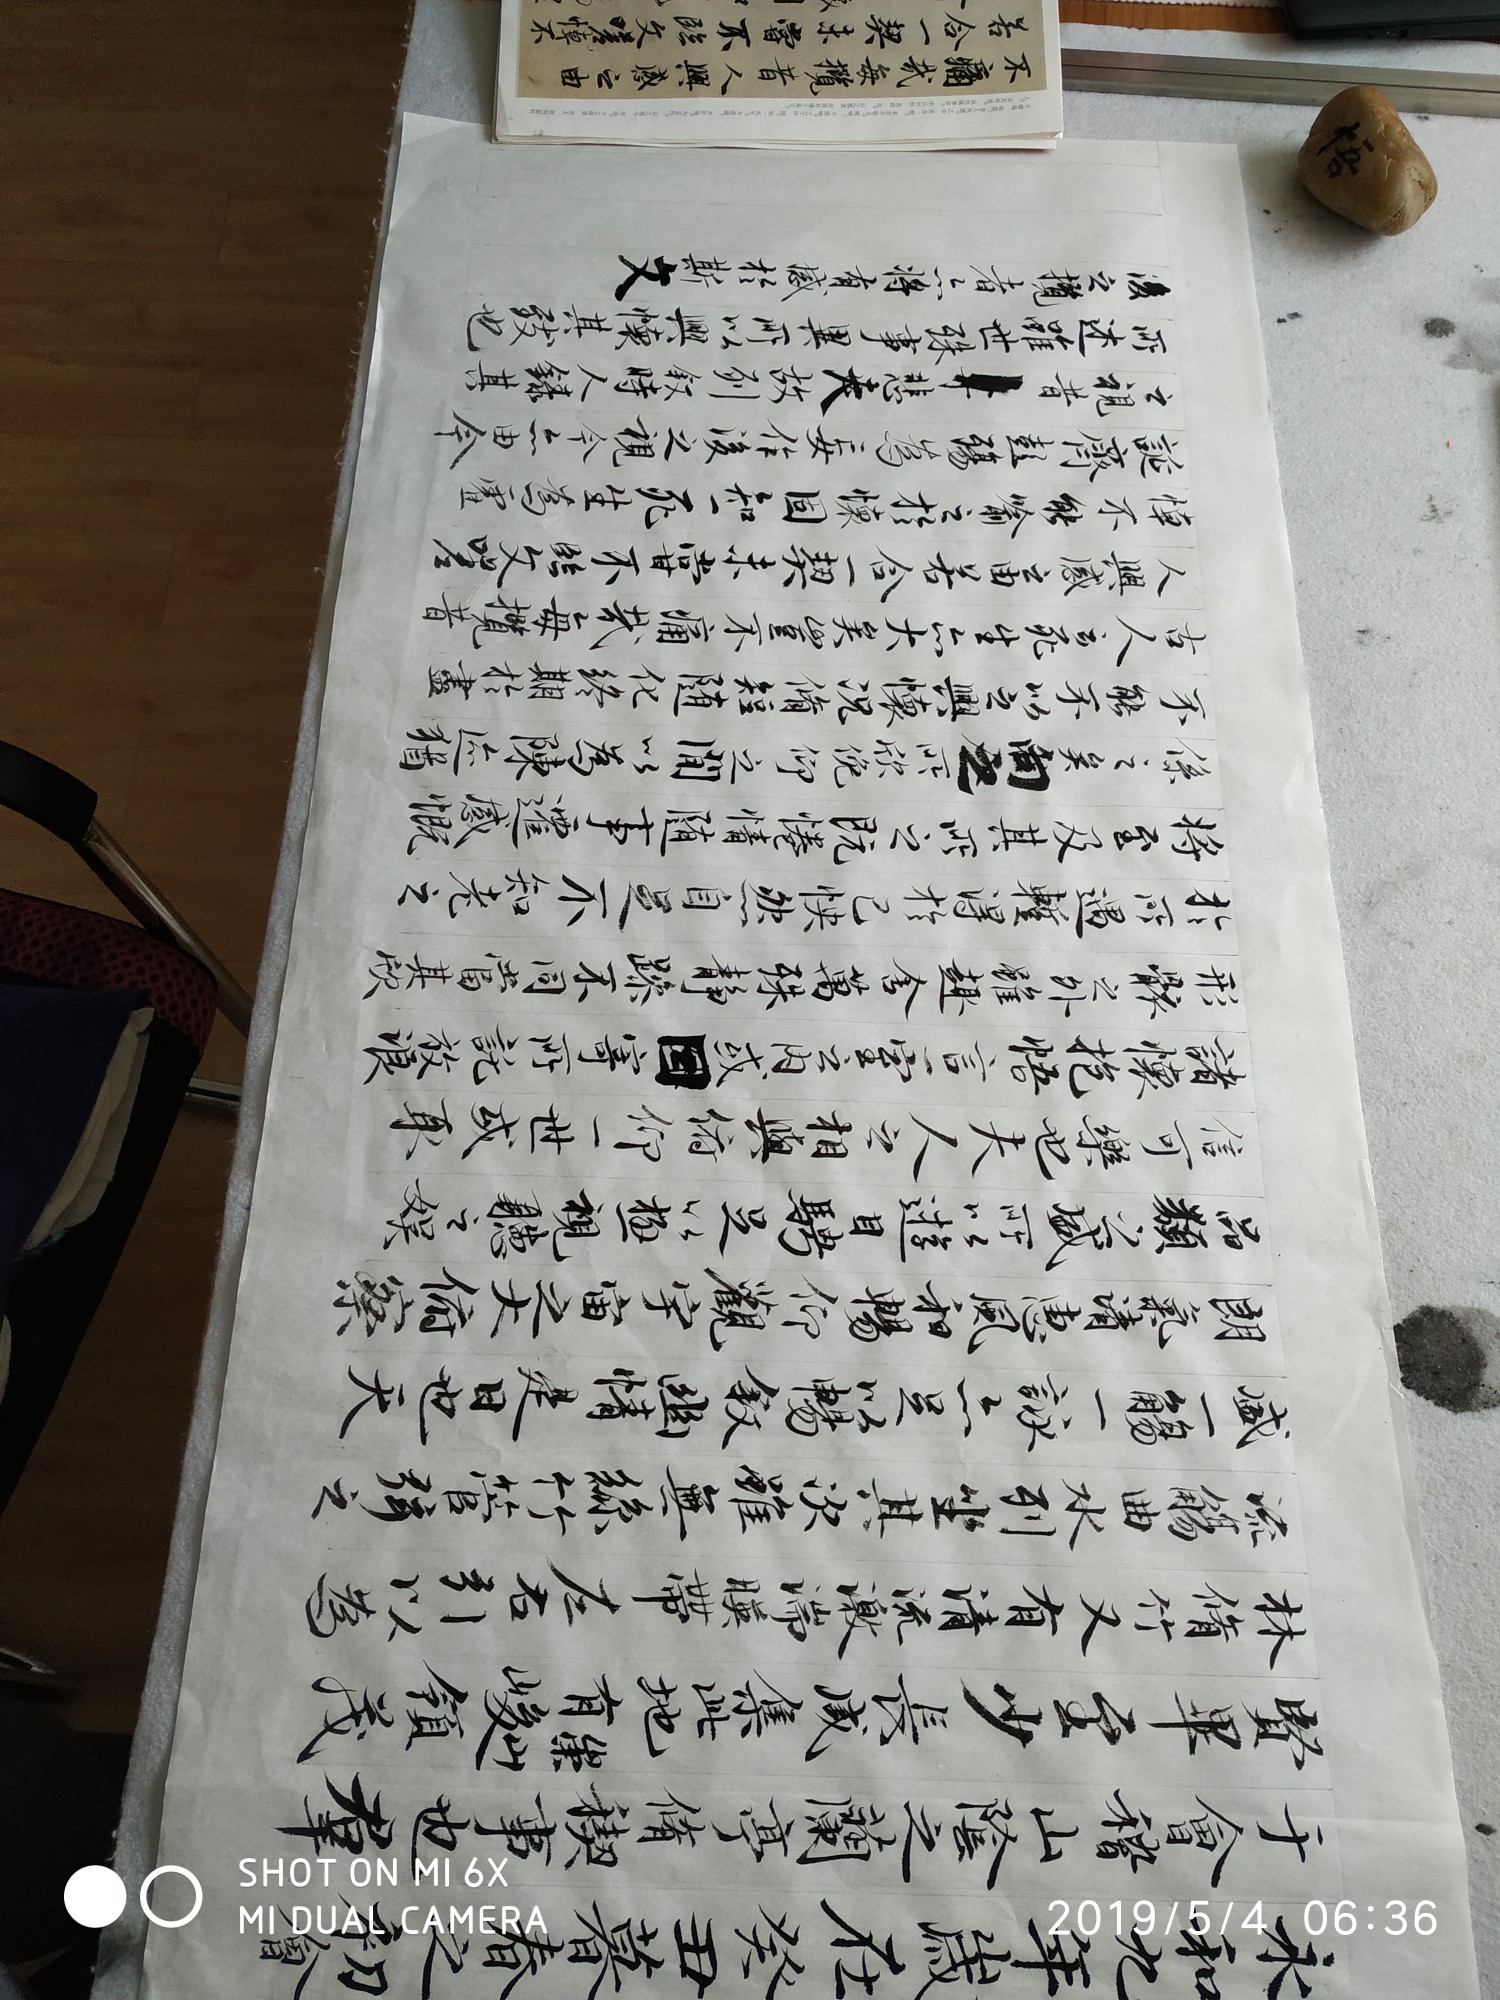 永和九年歲在癸丑暮春之初會
于會稽山陰之蘭亭脩稧事也群
賢畢至少長咸集此地有崇山峻領茂
林脩竹又有清流激湍暎帶左右引以為
流觴曲水列坐其次雖無絲竹管弦之
盛一觴一詠亦足以暢敘幽情是日也天
朗氣清惠風和暢仰觀宇宙之大俯察
品類之盛所以遊目騁足以極視聽之娛
信可樂也夫人之相與俯仰一世或取
諸懷抱悟言一室之內或因寄所託放浪
形骸之外雖趣舍萬殊靜躁不同當其欣
於所遇蹔得於己怏然自足不知老之
將至及其所之既惓情隨事遷感慨
係之矣向之所欣俛仰之間以為陳迹猶
不能不以之興懷況脩短隨化終期於盡
古人云死生亦大矣豈不痛哉每攬昔
人興感之由若合一契未嘗不臨文嗟
悼不能喻之於懷固知一死生為虛
誕齊彭殤為妄作後之視今亦由今
之視昔悲夫故列敘時人錄其
所述雖世殊事異所以興懷其致也
後之攬者亦將有感於斯文
不痛哉每攬昔人興感之由
若合一契未嘗不臨文嗟悼不
悟
SHOT ON MI 6X
MI DUAL CAMERA
2019/5/4 06:36